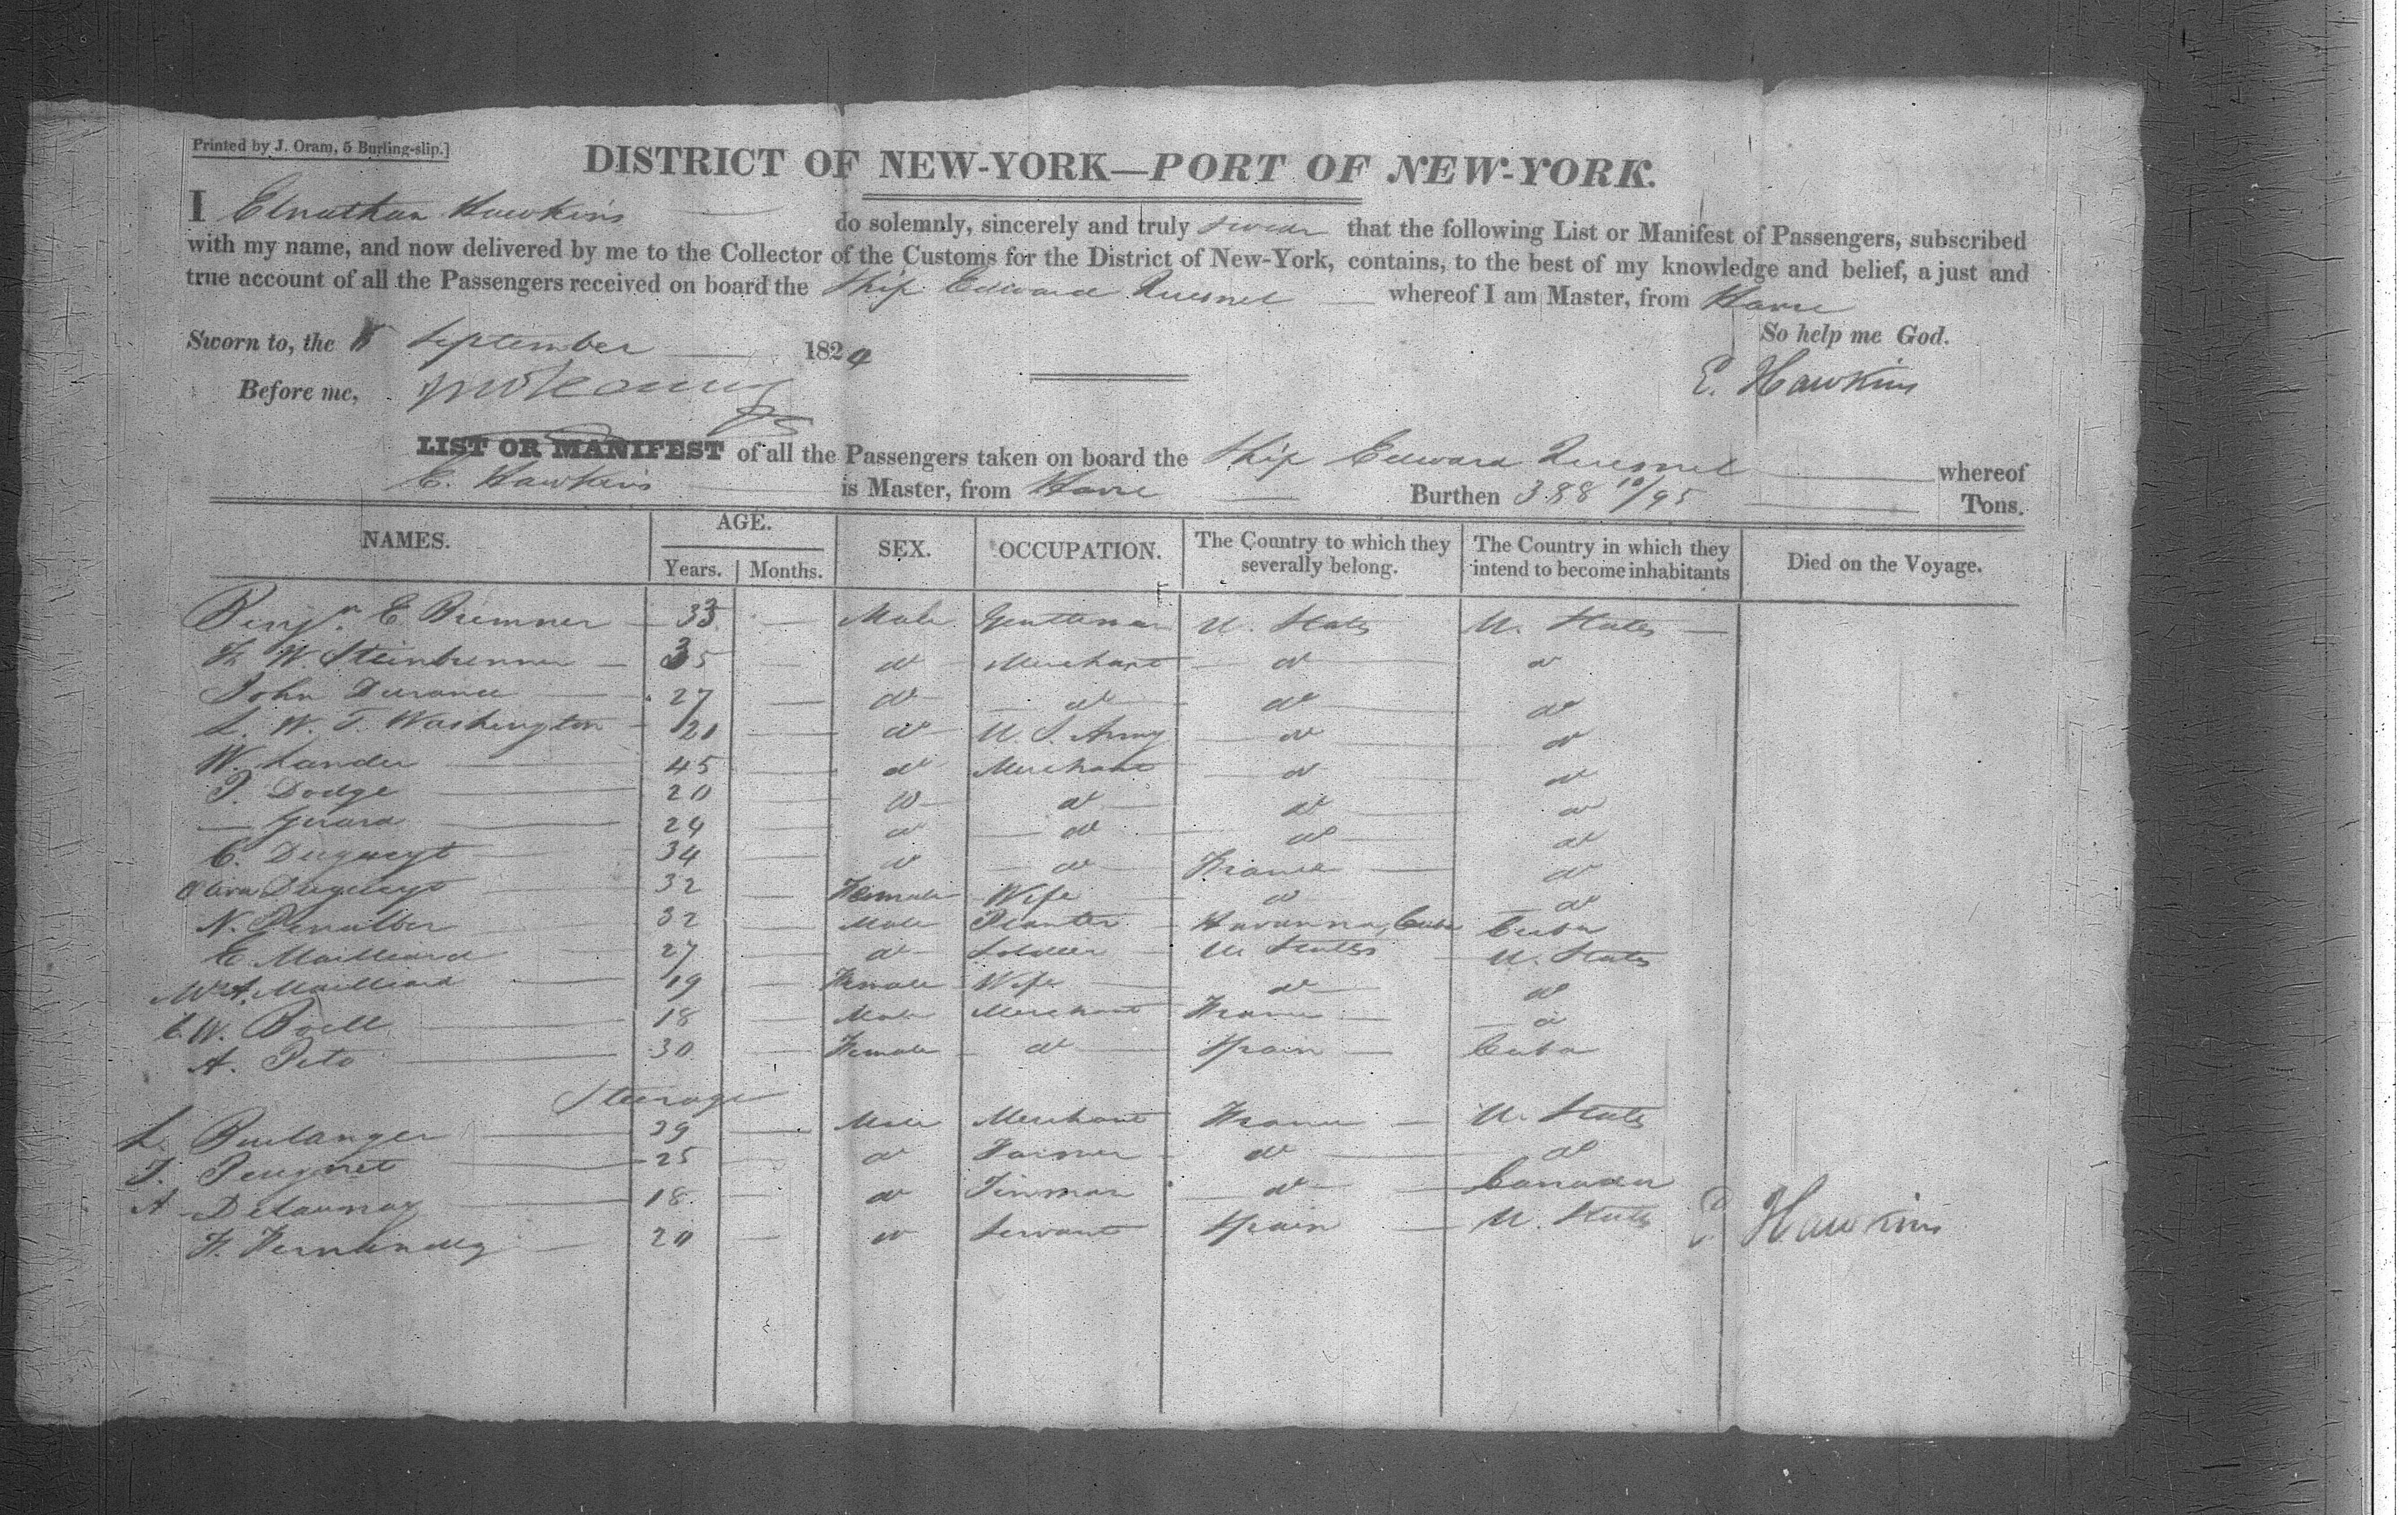 Printed by J. Oram, 5 Burling-slip.]
DISTRICT OF NEW-YORK—PORT OF NEW-YORK.
I Elnathan Hawkins do solemnly, sincerely and truly swear that the following List or Manifest of Passengers, subscribed
with my name, and now delivered by me to the Collector of the Customs for the District of New-York, contains, to the best of my knowledge and belief, a just and
true account of all the Passengers received on board the Ship Edward Quesnel whereof I am Master, from Havre
So help me God.
Sworn to, the September 1824
E. Hawkins
Before me,
LIST OR MANIFEST of all the Passengers taken on board the Ship Edward Quesnel whereof
E. Hawkins is Master, from Havre Burthen 388 10/95 Tons.
NAMES. AGE. Years. Months. SEX. OCCUPATION. The Country to which they severally belong. The Country in which they intend to become inhabitants Died on the Voyage.
Benjn. E Bremner 33 Male Gentleman U. States U. States
W. Steinbrenner 35 do Merchant do do
John Durance 27 do do do do
L. W. T. Washington 21 do U. S. Army do do
W. Lander 45 do Merchant do do
P. Dodge 20 do do do do
— Gerard 24 do do do do
C. 34 do do France do
32 Female Wife do do
N. Penalber 32 Male Planter Havanna, Cuba Cuba
E. Mailliard 27 do U. States U. States
Mailliard 19 Female Wife do do
C W. Boell 18 Male Merchant France do
A. Peto 30 Female do Spain Cuba
Steerage
L. Bulanger 29 Male Merchant France U. States
T. Peugnet 25 do Farmer do do
A Delaunay 18 do Tinman do Canada
F. Fernandez 20 do Servant Spain U. States
E. Hawkins